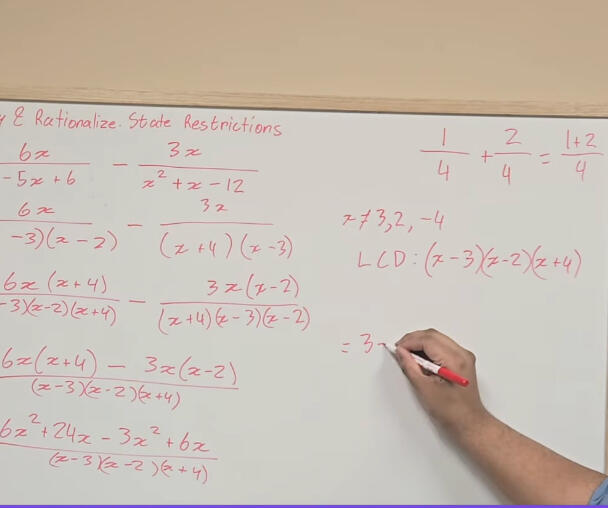 y & Rationalize. State Restrictions
6x / -5x+6 - 3x / x² + x - 12
6x / -3)(x-2) - 3x / (x+4)(x-3)
6x(x+4) / -3)(x-2)(x+4) - 3x(x-2) / (x+4)(x-3)(x-2)
6x(x+4) - 3x(x-2) / (x-3)(x-2)(x+4)
6x²+24x-3x²+6x / (x-3)(x-2)(x+4)
1/4 + 2/4 = 1+2/4
x≠3,2,-4
LCD: (x-3)(x-2)(x+4)
= 3